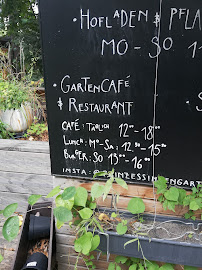 HOFLADEN & PFLA
MO-SO 1
GARTENCAFÉ
& RESTAURANT
CAFÉ: TÄGLICH 12°°-18°°
LUNCH: MO-SA: 12°°-15°°
BURGER: SO 13°°-16°°
INSTA: @PRINZESSINNENGART